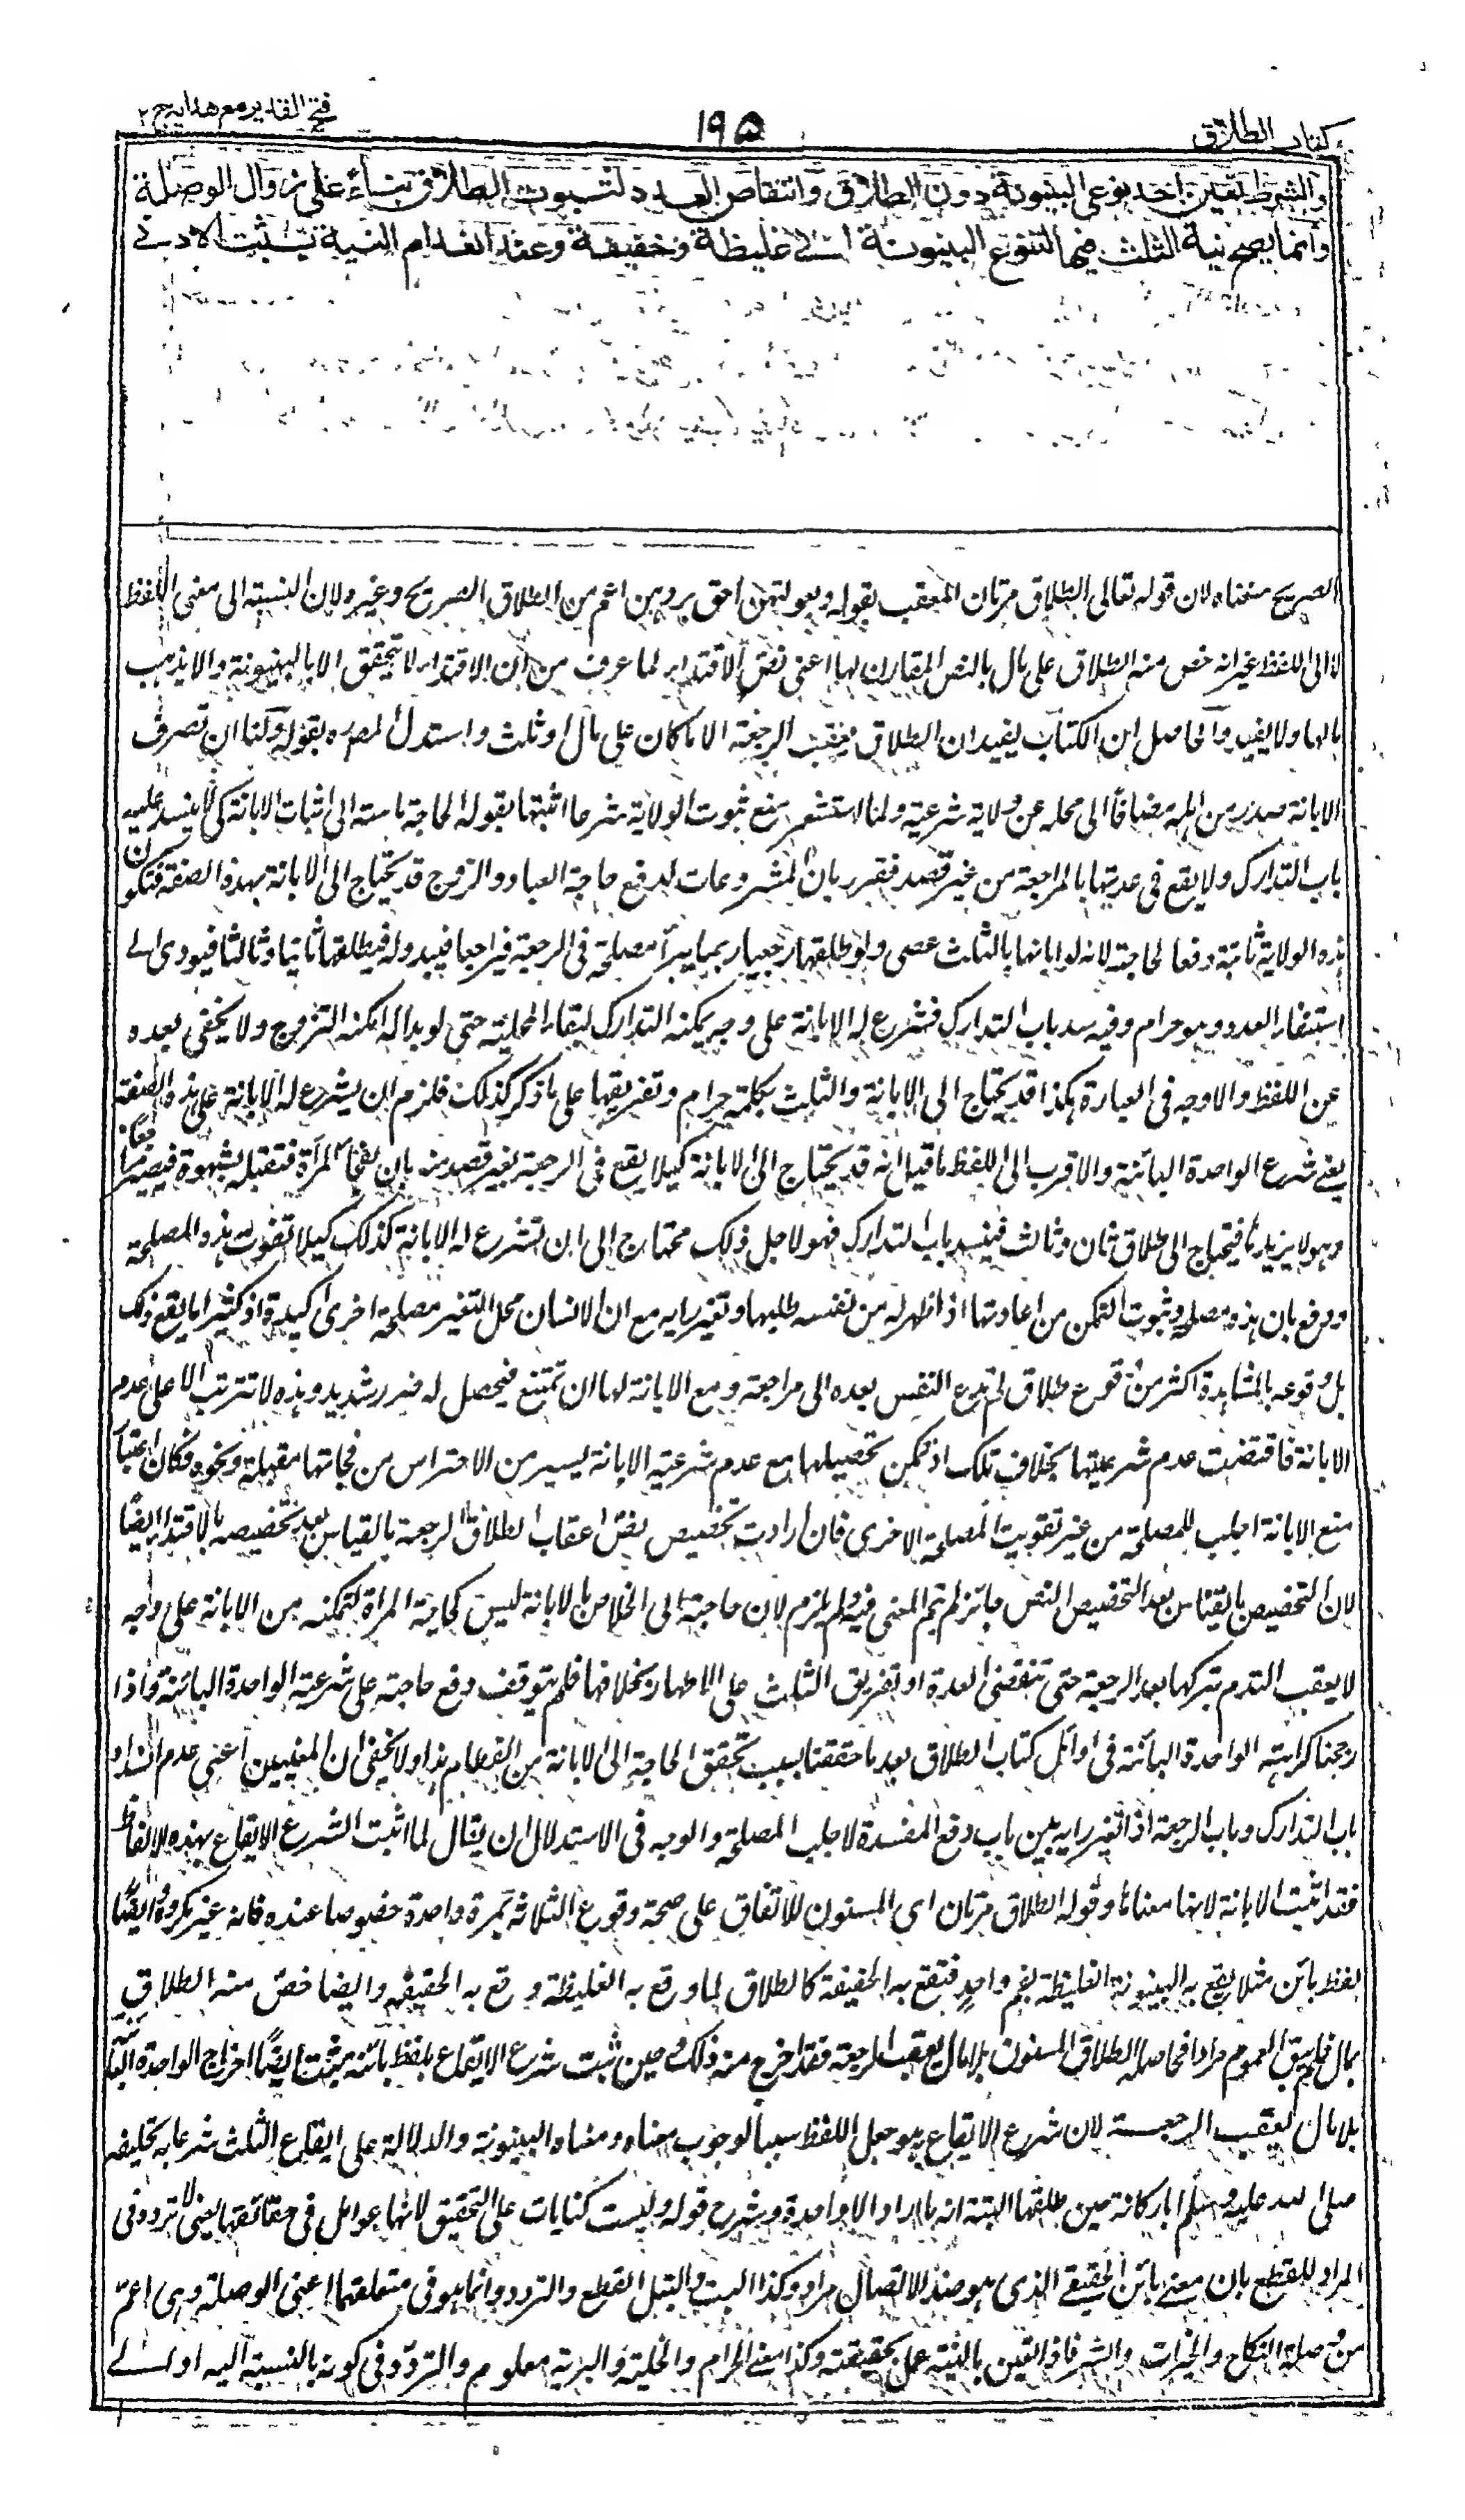 كتاب الطلاق
١٩٥
فتح القدير مع هدايه ج ٢
والشرط تعين احد نوعي البينونة دون الطلاق وانتقاص العدد لثبوت الطلاق بناء على زوال الوصلة
وانما يصح نية الثلث فيها لتنوع البينونة الى غليظة وخفيفة وعند انعدام النية يثبت الادنى
الصريح منعناه لان قوله تعالى الطلاق مرتان المعقب بقوله وبعولتهن احق بردهن اعم من الطلاق الصريح وغيره ولان النسبة الى معنى اللفظ
لا الى اللفظ غير انه خص منه الطلاق على مال بالنص المقارن لها اعنى نص الافتداء لما عرف من ان الافتداء لا يتحقق الا بالبينونة والا يذهب
مالها ولا يفيد والحاصل ان الكتاب يفيد ان الطلاق يعقب الرجعة الا ما كان على مال او ثلث واستدل المصره بقوله ولنا ان تصرف
الابانة صدر من اهله مضافا الى محله عن ولاية شرعية ولما استشعر منع ثبوت الولاية شرعا اثبتها بقوله الحاجة ماسة الى اثبات الابانة كى لا ينسد عليه
باب التدارك ولا يقع فى عدتها بالمراجعة من غير قصد فقرر بان المشروعات لدفع حاجة العباد والزوج قد يحتاج الى الابانة بهذه الصفة فتكون
هذه الولاية ثابتة دفعا لحاجته لانه لو ابانها بالثلث عصى ولو طلقها رجعيا ربما يبدأ مصلحة فى الرجعة فيراجعها فيبدو له فيطلقها ثانيا وثالثا فيودى الى
استنفاد العدد وهو حرام وفيه سد باب التدارك فشرع له الابانة على وجه يمكنه التدارك لبقاء المحلية حتى لو بدا له امكنه التزوج ولا يخفى بعده
عن اللفظ والاوجه فى العبارة هكذا قد يحتاج الى الابانة والثلث بكلمة حرام وتفريقها على ما ذكر كذلك فلزم ان يشرع له الابانة على هذه الصفة
يعنى شرع الواحدة البائنة والاقرب الى اللفظ ما قيل انه قد يحتاج الى الابانة كيلا يقع فى الرجعة بغير قصد منه بان تفجأ المرأة فتقبله بشهوة فيصير مراجعا
وهو لا يريدها فيحتاج الى طلاق ثان وثالث فينسد باب التدارك فهو لاجل ذلك محتاج الى ان تشرع له الابانة كذلك كيلا تفوت هذه المصلحة
ودفع بان هذه مصلحة وثبوت التمكن من اعادتها اذا ظهر له من نفسه طلبها وتغير رايه مع ان الانسان محل التغير مصلحة اخرى اكيدة اذ كثيرا ما يقع ذلك
بل وقوعه بالمشاهدة اكثر من وقوع طلاق لم تدع النفس بعده الى مراجعة ومع الابانة لها ان تمتنع فيحصل له ضرر شديد وهذه لا تترتب الا على عدم
الابانة فاقتضت عدم شرعيتها بخلاف تلك اذ يمكن تحصيلها مع عدم شرعية الابانة بيسير من الاحتراس من فجاتها مقبلة ونحوه فكان اعتبار
منع الابانة اجلب للمصلحة من غير تفويت المصلحة الاخرى فان ارادت تخصيص نص اعقاب الطلاق الرجعة بالقياس بعد تخصيصه بالافتداء ايضا
لان التخصيص بالقياس بعد التخصيص بالنص جائز لم يتم المعنى فيه ولم يلزم لان حاجته الى الخلاص بالابانة ليس كحاجة المراة لتمكنه من الابانة على وجه
لا يعقب الندم بتركها بعد الرجعية حتى تنقضى العدة او تفريق الثلث على الاطهار بخلافها فلم يتوقف دفع حاجته على شرعية الواحدة البائنة واذا
رجحنا كراهة الواحدة البائنة فى اوائل كتاب الطلاق بعد ما حققنا بسبب تحقق الحاجة الى الابانة من الفطام هذا ولا يخفى ان المعنيين اعنى عدم انسداد
باب التدارك وباب الرجعة اذا تغير رايه من باب دفع المفسدة لا جلب المصلحة والوجه فى الاستدلال ان يقال لما اثبت الشرع الايقاع بهذه الالفاظ
فقد اثبت الابانة لانها معناها وقوله الطلاق مرتان اى المسنون للاتفاق على صحة وقوع الثلاثة بمرة واحدة خصوصا عنده فانه غير مكروه وايضا
لفظ بائن مثلا يقع به البينونة الغليظة بفم واحد فتقع به الخفيفة كالطلاق لما وقع به الغليظة وقع به الخفيفة وايضا خص منه الطلاق
بمال فلم يبق العموم مرادا فحاصله الطلاق المسنون بلا مال يعقب الرجعة فقد اخرج منه ذلك حين ثبت شرع الايقاع بلفظ بائن يثبت ايضا اخراج الواحدة البائنة
بلا مال تعقب الرجعة لان شرع الايقاع هو جعل اللفظ سببا لوجوب معناه ومعناه البينونة والدلالة على ايقاع الثلث شرعا به تحليفه
صلى الله عليه وسلم ابا ركانة حين طلقها البتة انه ما اراد الا واحدة وشرح قوله وليست كنايات على التحقيق لانها عوامل فى حقائقها يعنى لا تردد فى
المراد للقطع بان معنى بائن الحقيقى الذى هو ضد الاتصال مراد وكذا البت والبتل القطع والتردد وانما هو فى متعلقها اعنى الوصلة وهى اعم
من وصلة النكاح والخيرات والشر فاذا تعين بالنية عمل بحقيقته وكذا معنى الحرام والخلية والبرية معلوم والتردد فى كونه بالنسبة اليه او الى